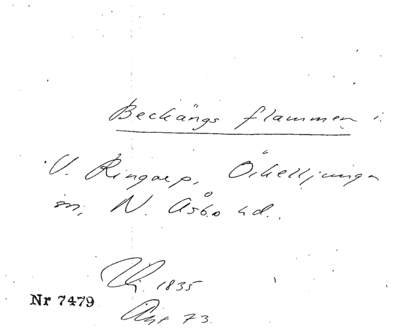 Beckängs flammen i.
V. Ringarp, Örkelljunga
sn, N. Åsbo hd.
1835
Nr 7479
73.